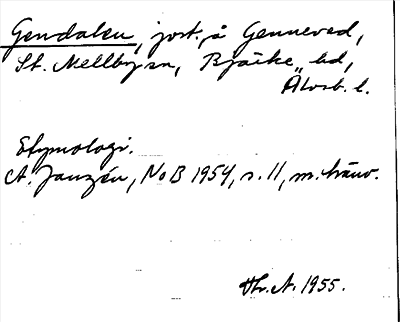 Gendalen, jord å Genneved,
St. Mellby sn, Bjärke hd,
Älvsb. l.
Etymologi.
A. Janzén, NoB 1954, s. 11, m. hänv.
A. 1955.